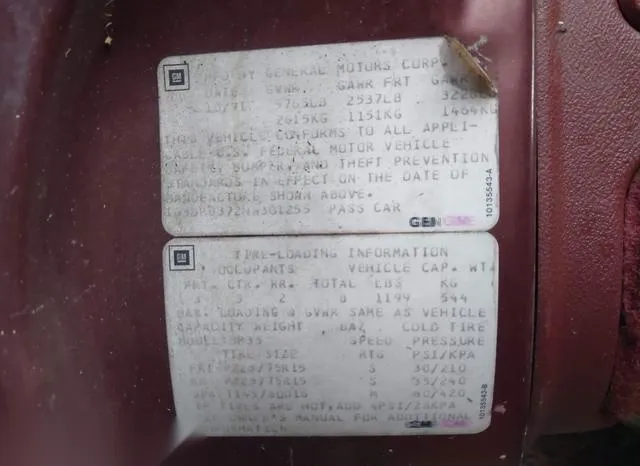 GM
MFD BY GENERAL MOTORS CORP.
DATE GVWR GAWR FRT GAWR
10/91 5763LB 2537LB
2615KG 1151KG 1464KG
THIS VEHICLE CONFORMS TO ALL APPLI-
CABLE U.S. FEDERAL MOTOR VEHICLE
SAFETY, BUMPER, AND THEFT PREVENTION
STANDARDS IN EFFECT ON THE DATE OF
MANUFACTURE SHOWN ABOVE.
PASS CAR
10135543-A
GM
TIRE-LOADING INFORMATION
OCCUPANTS VEHICLE CAP. WT.
FRT. CTR. RR. TOTAL LBS KG
3 3 2 8 1199 544
MAX. LOADING & GVWR SAME AS VEHICLE
CAPACITY WEIGHT COLD TIRE
MODEL: SPEED PRESSURE
TIRE SIZE RTG PSI/KPA
FRT P225/75R15 S 30/210
RR P225/75R15 S 35/240
SPA T145/80D16 M 60/420
IF TIRES ARE HOT, ADD 4PSI/28KPA
SEE OWNER'S MANUAL FOR ADDITIONAL
INFORMATION
10135543-B